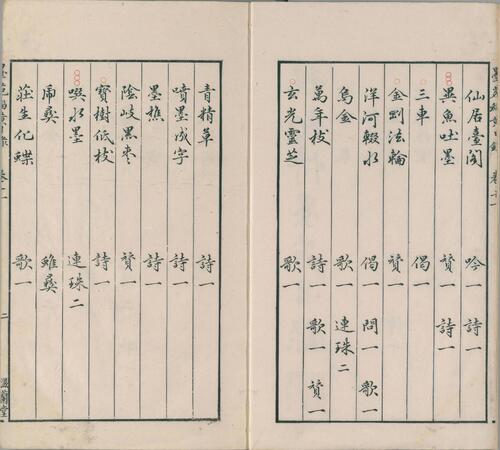 仙居臺閣 吟一 詩一
異魚吐墨 贊一 詩一
三車 偈一
金剛法輪 贊一
洋河輟水 偈一 問一 歌一
烏金 歌一 連珠二
萬年枝 詩一 歌一 贊一
玄光靈芝 歌一
青精草 詩一
噴墨成字 詩一
墨樵 詩一
陰岐黑棗 贊一
寶樹低枝 詩一
噀水墨 連珠二
虎彜 蜼彜
莊生化蝶 歌一
二 滋蘭堂